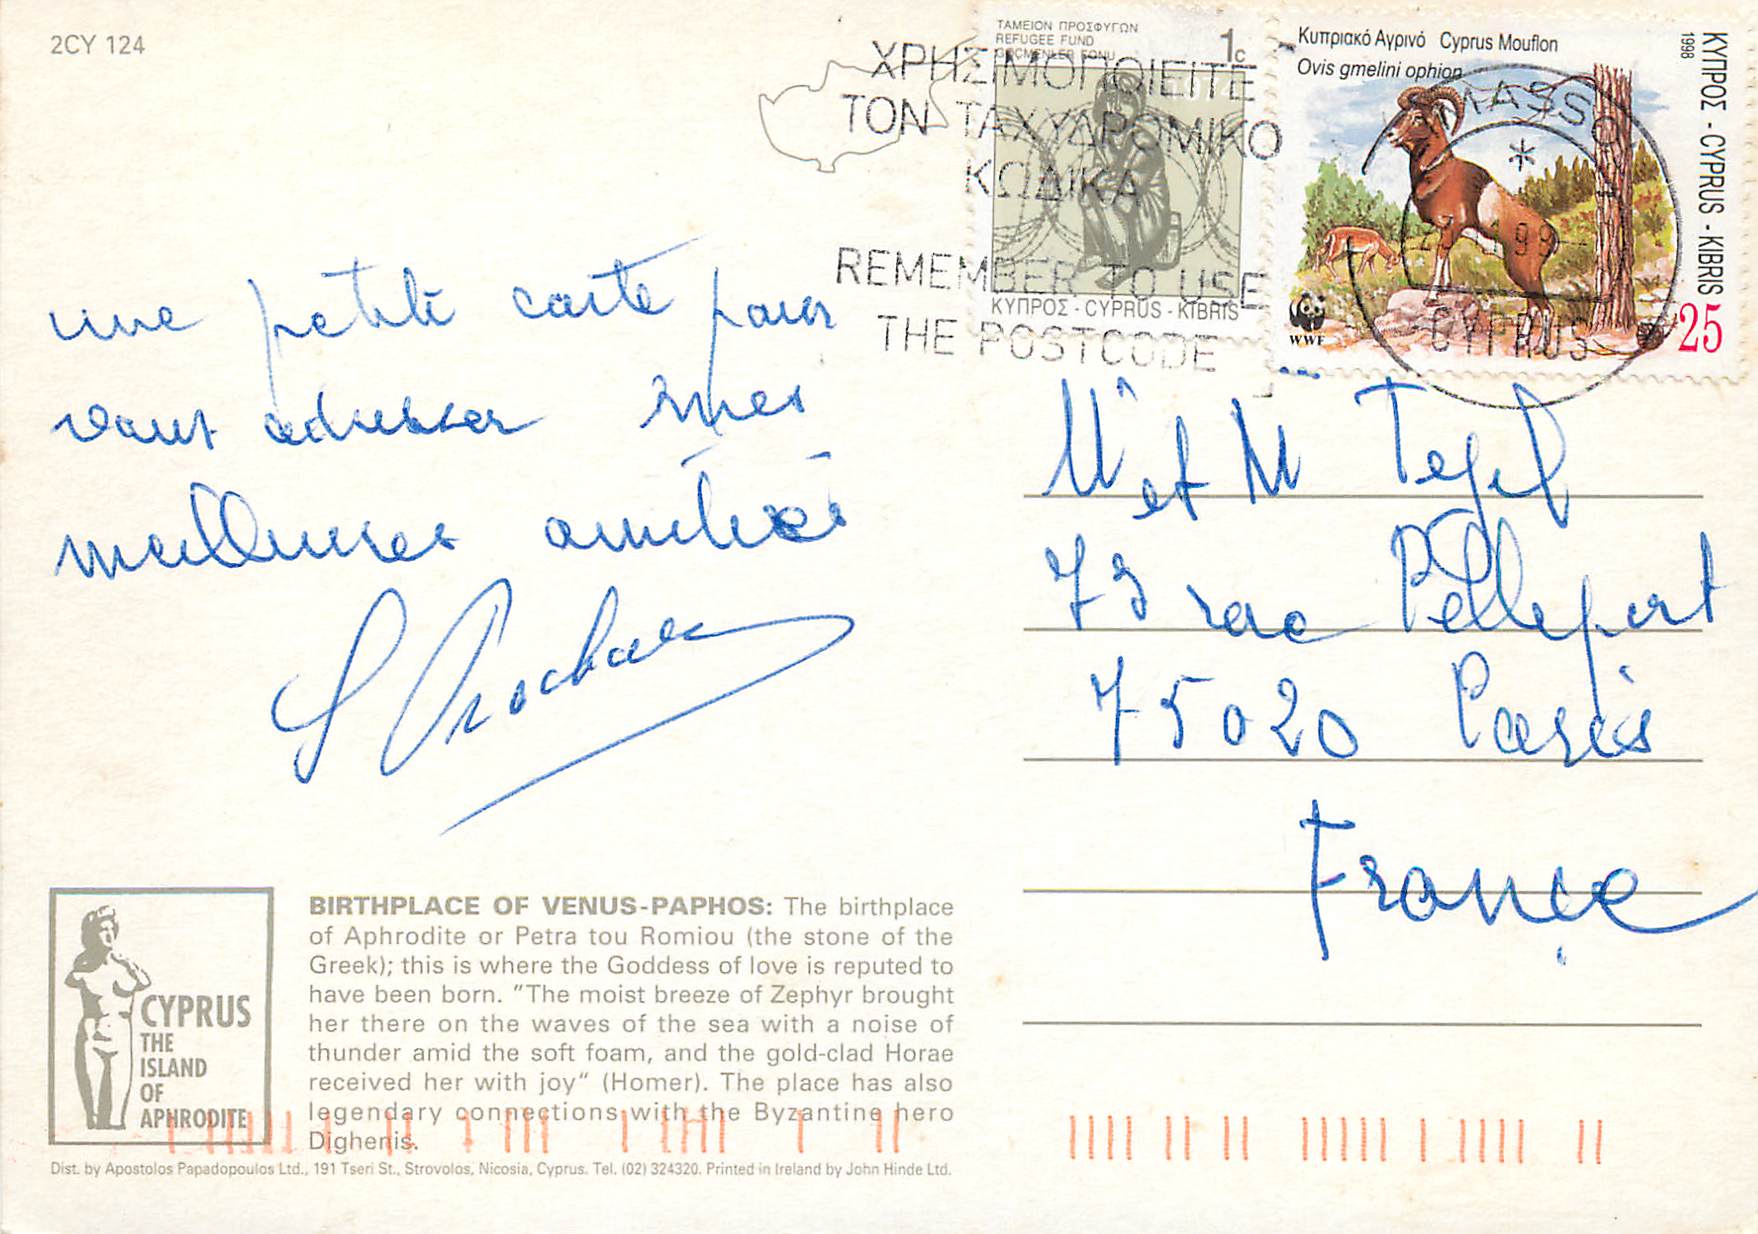 2CY 124
ΤΑΜΕΙΟΝ ΠΡΟΣΦΥΓΩΝ
REFUGEE FUND
GÖÇMENLER FONU
1c
1974
ΚΥΠΡΟΣ - CYPRUS - KIBRIS
Κυπριακό Αγρινό Cyprus Mouflon
Ovis gmelini ophion
1998
ΚΥΠΡΟΣ - CYPRUS - KIBRIS
WWF
25
ΧΡΗΣΙΜΟΠΟΙΕΙΤΕ
ΤΟΝ ΤΑΧΥΔΡΟΜΙΚΟ
ΚΩΔΙΚΑ
REMEMBER TO USE
THE POSTCODE
CYPRUS
une petite carte pour
vous adresser mes
meilleures amitiés
et M Tefel
73 rue Pelleport
75020 Paris
France
CYPRUS
THE
ISLAND
OF
APHRODITE
BIRTHPLACE OF VENUS-PAPHOS: The birthplace
of Aphrodite or Petra tou Romiou (the stone of the
Greek); this is where the Goddess of love is reputed to
have been born. "The moist breeze of Zephyr brought
her there on the waves of the sea with a noise of
thunder amid the soft foam, and the gold-clad Horae
received her with joy" (Homer). The place has also
legendary connections with the Byzantine hero
Dighenis.
Dist. by Apostolos Papadopoulos Ltd., 191 Tseri St., Strovolos, Nicosia, Cyprus. Tel. (02) 324320. Printed in Ireland by John Hinde Ltd.